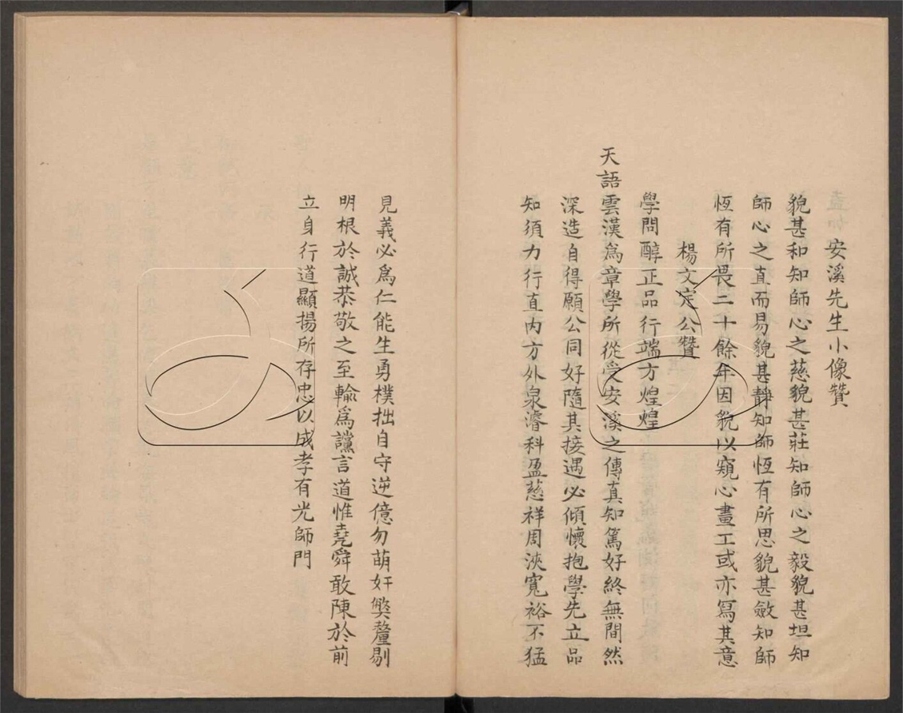 安溪先生小像贊
貌甚和知師心之慈貌甚莊知師心之毅貌甚坦知
師心之直而易貌甚靜知師恆有所思貌甚斂知師
恆有所畏二十餘年因貌以窺心畫工或亦寫其意
楊文定公贊
學問醇正品行端方煌煌
天語雲漢為章學所從受安溪之傳真知篤好終無間然
深造自得願公同好隨其接遇必傾懷抱學先立品
知須力行直內方外泉濬科盈慈祥周浹寬裕不猛
見義必為仁能生勇樸拙自守逆億勿萌奸弊釐剔
明根於誠恭敬之至輸為讜言道惟堯舜敢陳於前
立身行道顯揚所存忠以成孝有光師門